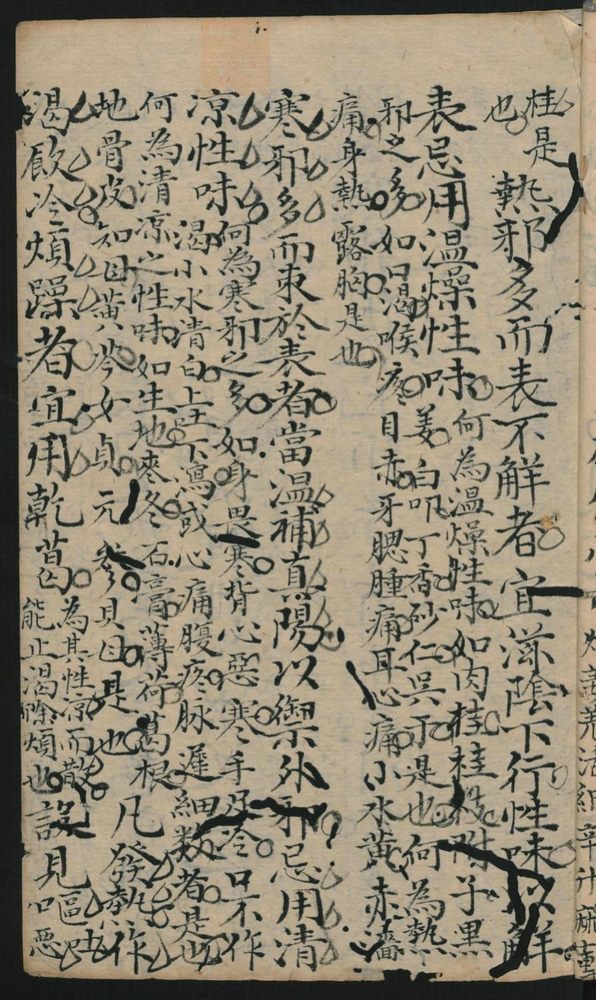 桂是
也
熱邪多而表不解者宜滋陰下行性味以解
表忌用溫燥性味
何為溫燥性味如肉桂桂枝附子黑
姜白叩丁香砂仁吳于是也何為熱
邪之多如口渴喉疼目赤牙腮腫痛耳心痛小水黃赤濇
痛身熱露胸是也
寒邪多而束於表者當溫補真陽以禦外邪忌用清
凉性味
何為寒邪之多如身畏寒背心惡寒手足冷口不作
渴小水清白上吐下瀉或心痛腹疼脉遲細数者是也
何為清凉之性味如生地麥冬石膏薄荷葛根
地骨皮知母黃芩女貞元參貝母是也
凡發熱作
渴飲冷煩躁者宜用乾葛
為其性凉而散
能止渴除煩也
設見嘔惡